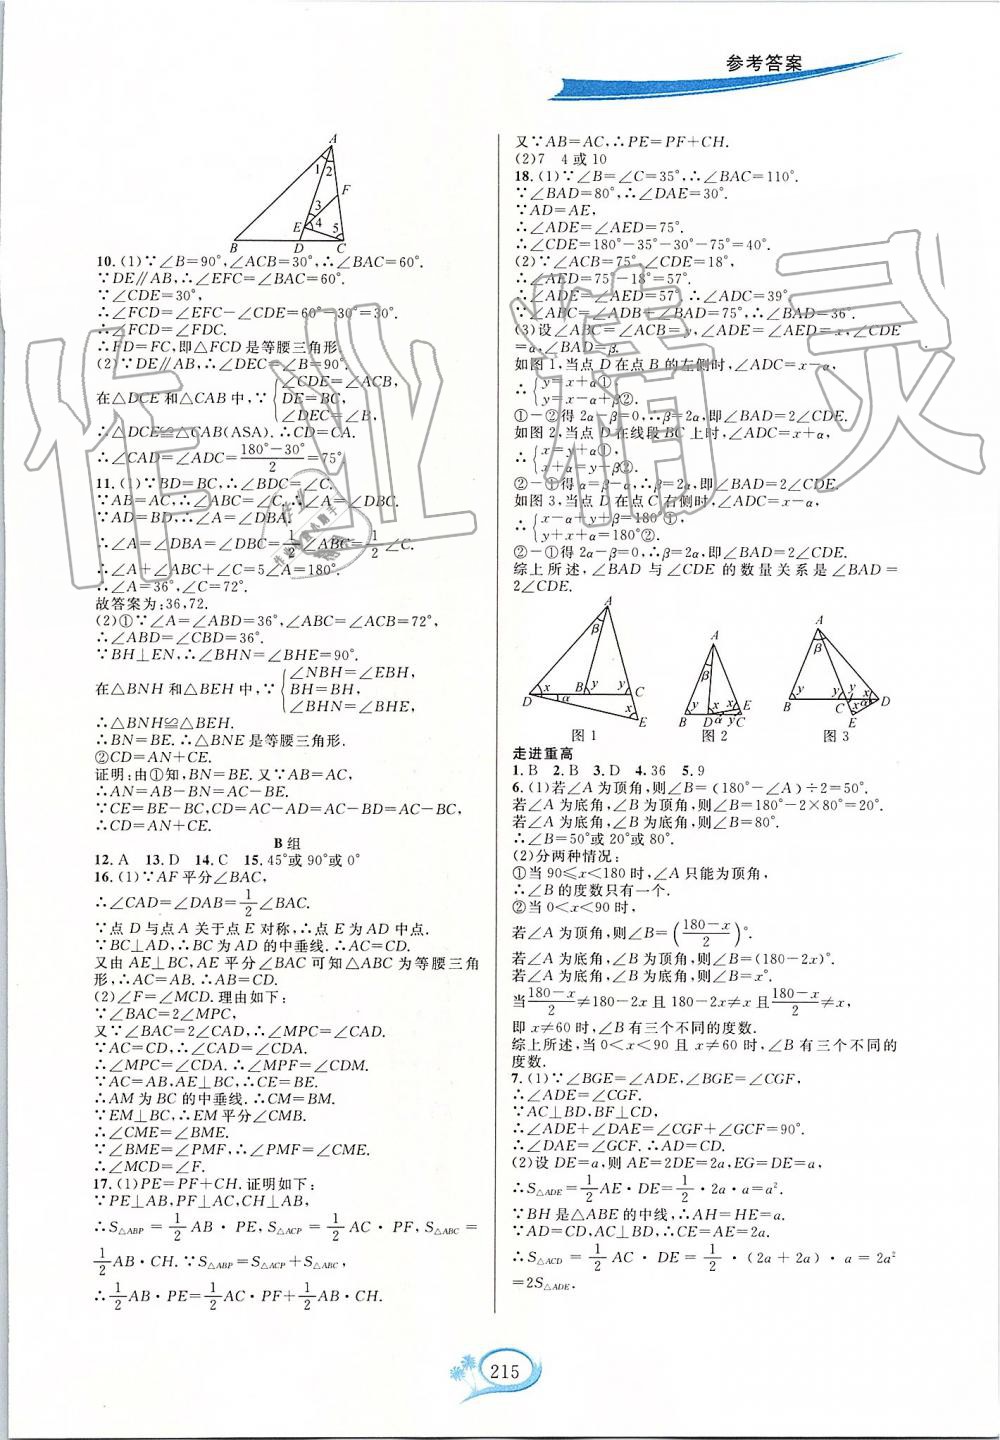 参考答案
A
1 2
F
3
E 4
5
B D C
10.(1)∵∠B=90°,∠ACB=30°,∴∠BAC=60°.
∵DE∥AB,∴∠EFC=∠BAC=60°.
∵∠CDE=30°,
∴∠FCD=∠EFC-∠CDE=60°-30°=30°.
∴∠FCD=∠FDC.
∴FD=FC,即△FCD是等腰三角形.
(2)∵DE∥AB,∴∠DEC=∠B=90°.
在△DCE和△CAB中,∵{∠CDE=∠ACB,
DE=BC,
∠DEC=∠B,
∴△DCE≌△CAB(ASA).∴CD=CA.
∴∠CAD=∠ADC=(180°-30°)/2=75°.
11.(1)∵BD=BC,∴∠BDC=∠C.
∵AB=AC,∴∠ABC=∠C.∴∠A=∠DBC.
∵AD=BD,∴∠A=∠DBA.
∴∠A=∠DBA=∠DBC=1/2∠ABC=1/2∠C.
∴∠A+∠ABC+∠C=5∠A=180°.
∴∠A=36°,∠C=72°.
故答案为:36,72.
(2)①∵∠A=∠ABD=36°,∠ABC=∠ACB=72°,
∴∠ABD=∠CBD=36°.
∵BH⊥EN,∴∠BHN=∠BHE=90°.
在△BNH和△BEH中,∵{∠NBH=∠EBH,
BH=BH,
∠BHN=∠BHE,
∴△BNH≌△BEH.
∴BN=BE.∴△BNE是等腰三角形.
②CD=AN+CE.
证明:由①知,BN=BE.又∵AB=AC,
∴AN=AB-BN=AC-BE.
∵CE=BE-BC,CD=AC-AD=AC-BD=AC-BC,
∴CD=AN+CE.
B组
12.A 13.D 14.C 15.45°或90°或0°
16.(1)∵AF平分∠BAC,
∴∠CAD=∠DAB=1/2∠BAC.
∵点D与点A关于点E对称,∴点E为AD中点.
∵BC⊥AD,∴BC为AD的中垂线.∴AC=CD.
又由AE⊥BC,AE平分∠BAC可知△ABC为等腰三角
形,∴AC=AB.∴AB=CD.
(2)∠F=∠MCD.理由如下:
∵∠BAC=2∠MPC,
又∵∠BAC=2∠CAD,∴∠MPC=∠CAD.
∵AC=CD,∴∠CAD=∠CDA.
∴∠MPC=∠CDA.∴∠MPF=∠CDM.
∵AC=AB,AE⊥BC,∴CE=BE.
∴AM为BC的中垂线.∴CM=BM.
∵EM⊥BC,∴EM平分∠CMB.
∴∠CME=∠BME.
∵∠BME=∠PMF,∴∠PMF=∠CME.
∴∠MCD=∠F.
17.(1)PE=PF+CH.证明如下:
∵PE⊥AB,PF⊥AC,CH⊥AB,
∴S△ABP=1/2AB·PE,S△ACP=1/2AC·PF,S△ABC=
1/2AB·CH.∵S△ABP=S△ACP+S△ABC,
∴1/2AB·PE=1/2AC·PF+1/2AB·CH.
又∵AB=AC,∴PE=PF+CH.
(2)7 4或10
18.(1)∵∠B=∠C=35°,∴∠BAC=110°.
∵∠BAD=80°,∴∠DAE=30°.
∵AD=AE,
∴∠ADE=∠AED=75°.
∴∠CDE=180°-35°-30°-75°=40°.
(2)∵∠ACB=75°,∠CDE=18°,
∴∠AED=75°-18°=57°.
∴∠ADE=∠AED=57°.∴∠ADC=39°.
∵∠ABC=∠ADB+∠BAD=75°,∴∠BAD=36°.
(3)设∠ABC=∠ACB=y,∠ADE=∠AED=x,∠CDE
=α,∠BAD=β.
如图1,当点D在点B的左侧时,∠ADC=x-α,
∴{y=x+α①,
y=x-α+β②.
①-②得2α-β=0,∴β=2α,即∠BAD=2∠CDE.
如图2,当点D在线段BC上时,∠ADC=x+α,
∴{y=x+α①,
x+α=y+β②.
②-①得α=β-α,∴β=2α,即∠BAD=2∠CDE.
如图3,当点D在点C右侧时,∠ADC=x-α,
∴{x-α+y+β=180°①,
y+x+α=180°②.
②-①得2α-β=0,∴β=2α,即∠BAD=2∠CDE.
综上所述,∠BAD与∠CDE的数量关系是∠BAD=
2∠CDE.
A
β
x α B y y
D C
x
E
图1
A
β
y x x
B D α y C E
图2
A
β
y y α
B C x x D
E
图3
走进重高
1.B 2.B 3.D 4.36 5.9
6.(1)若∠A为顶角,则∠B=(180°-∠A)÷2=50°.
若∠A为底角,∠B为顶角,则∠B=180°-2×80°=20°.
若∠A为底角,∠B为底角,则∠B=80°.
∴∠B=50°或20°或80°.
(2)分两种情况:
①当90≤x<180时,∠A只能为顶角,
∴∠B的度数只有一个.
②当0<x<90时,
若∠A为顶角,则∠B=((180-x)/2)°.
若∠A为底角,∠B为顶角,则∠B=(180-2x)°.
若∠A为底角,∠B为底角,则∠B=x°.
当(180-x)/2≠180-2x且180-2x≠x且(180-x)/2≠x,
即x≠60时,∠B有三个不同的度数.
综上所述,当0<x<90且x≠60时,∠B有三个不同的
度数.
7.(1)∵∠BGE=∠ADE,∠BGE=∠CGF,
∴∠ADE=∠CGF.
∵AC⊥BD,BF⊥CD,
∴∠ADE+∠DAE=∠CGF+∠GCF=90°.
∴∠DAE=∠GCF.∴AD=CD.
(2)设DE=a,则AE=2DE=2a,EG=DE=a,
∴S△ADE=1/2AE·DE=1/2·2a·a=a².
∵BH是△ABE的中线,∴AH=HE=a.
∵AD=CD,AC⊥BD,∴CE=AE=2a.
∴S△ACD=1/2AC·DE=1/2·(2a+2a)·a=2a²
=2S△ADE.
作业精灵
215